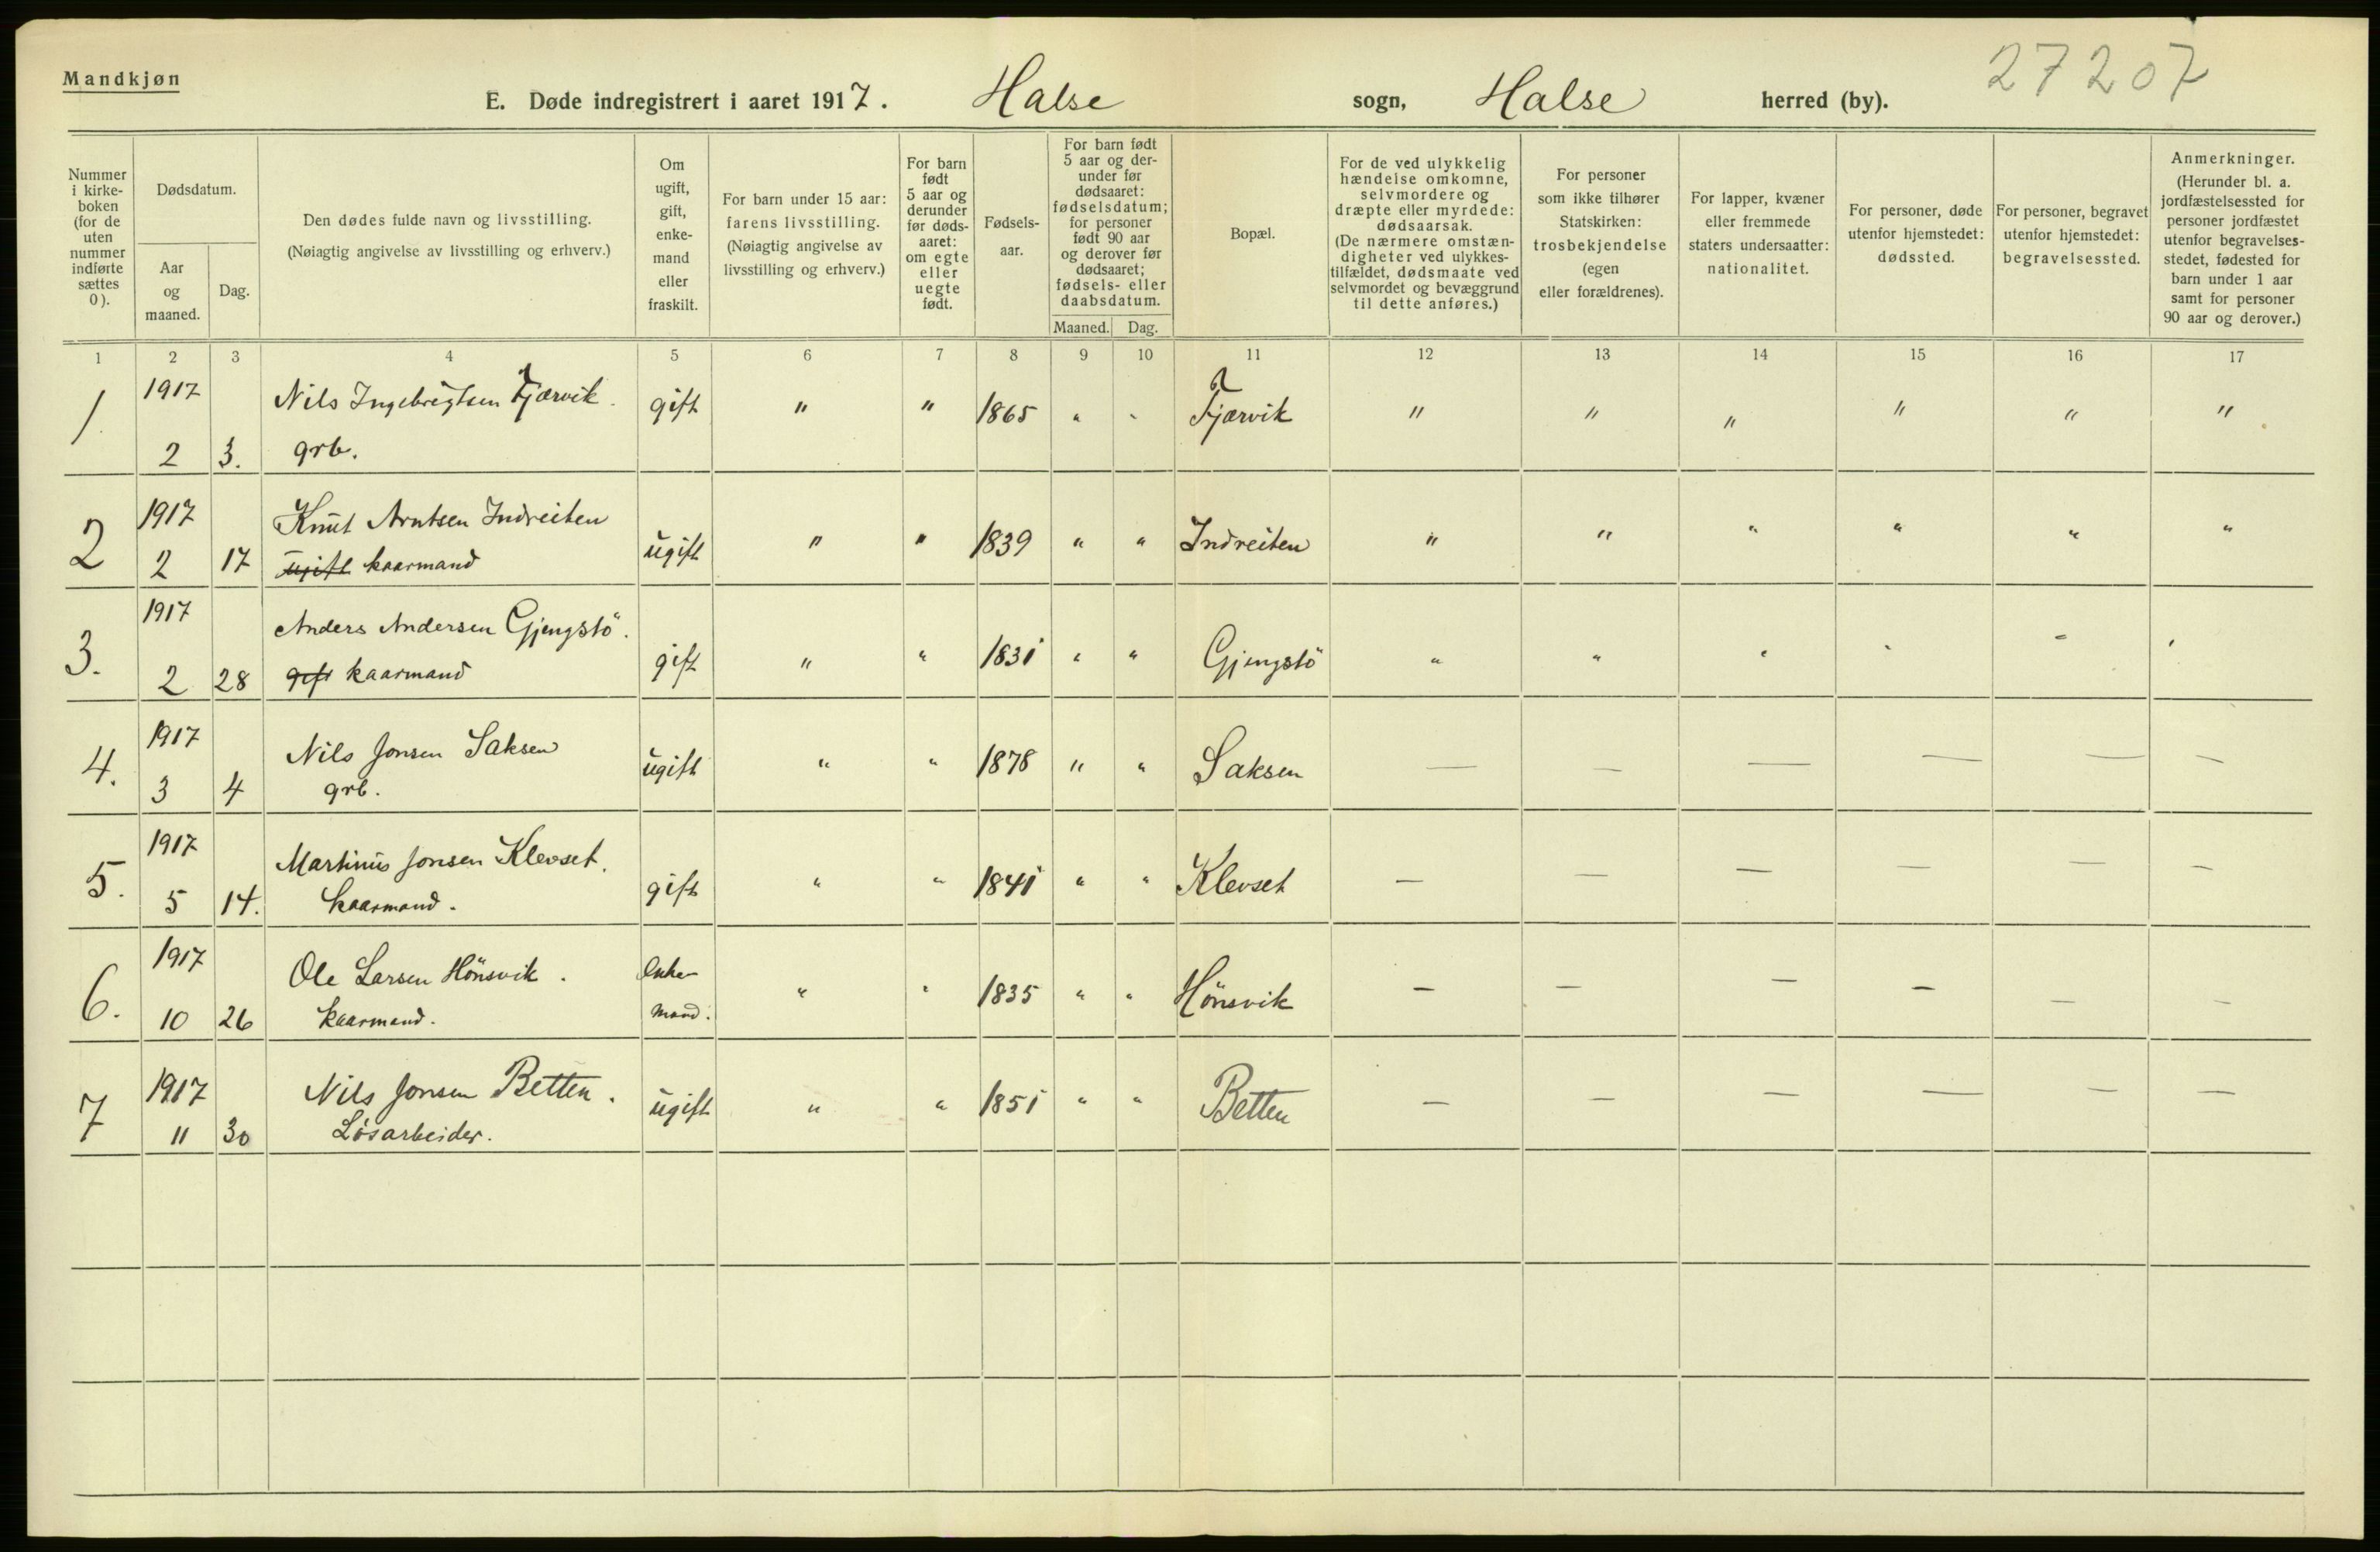 Mandkjøn
27207
E. Døde indregistrert i aaret 1917. Halse sogn, Halse herred (by).
Nummer
i kirke-
boken
(for de
uten
nummer
indførte
sættes
0).
Dødsdatum.
Aar
og
maaned.
Dag.
Den dødes fulde navn og livsstilling.
(Nøiagtig angivelse av livsstilling og erhverv.)
Om
ugift,
gift,
enke-
mand
eller
fraskilt.
For barn under 15 aar:
farens livsstilling.
(Nøiagtig angivelse av
livsstilling og erhverv.)
For barn
født
5 aar og
derunder
før døds-
aaret:
om egte
eller
uegte
født.
Fødsels-
aar.
For barn født
5 aar og der-
under før
dødsaaret:
fødselsdatum;
for personer
født 90 aar
og derover før
dødsaaret;
fødsels- eller
daabsdatum.
Maaned. Dag.
Bopæl.
For de ved ulykkelig
hændelse omkomne,
selvmordere og
dræpte eller myrdede:
dødsaarsak.
(De nærmere omstæn-
digheter ved ulykkes-
tilfældet, dødsmaate ved
selvmordet og bevæggrund
til dette anføres.)
For personer
som ikke tilhører
Statskirken:
trosbekjendelse
(egen
eller forældrenes).
For lapper, kvæner
eller fremmede
staters undersaatter:
nationalitet.
For personer, døde
utenfor hjemstedet:
dødssted.
For personer, begravet
utenfor hjemstedet:
begravelsessted.
Anmerkninger.
(Herunder bl. a.
jordfæstelsessted for
personer jordfæstet
utenfor begravelses-
stedet, fødested for
barn under 1 aar
samt for personer
90 aar og derover.)
1 2 3 4 5 6 7 8 9 10 11 12 13 14 15 16 17
1917 Nils Ingebrigtsen Fjærvik. gift " " 1865 " " Fjærvik " " " " " "
1. 2 3. grb.
1917 Knut Arntsen Indreiten
2 2 17 ugift kaarmand ugift " " 1839 " " Indreiten " " " " " "
1917 Anders Andersen Gjengstö.
3. 2 28 gift kaarmand gift " " 1831 " " Gjengstö " " " " " "
1917 Nils Jonsen Saksen
4. 3 4 grb. ugift " " 1878 " " Saksen — — — — — —
1917 Martinus Jonsen Klevset.
5. 5 14. kaarmand. gift " " 1841 " " Klevset — — — — — —
1917 Ole Larsen Hönsvik. Enke-
6. 10 26 kaarmand. mand. " " 1835 " " Hönsvik — — — — — —
1917 Nils Jonsen Betten.
7 11 30 Løsarbeider. ugift " " 1851 " " Betten — — — — — —